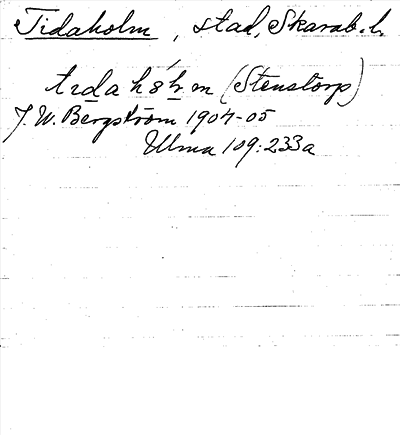 Tidaholm, stad, Skarab. l.
(Stenstorp)
J. W. Bergström 1904-05
Ulma 109:233a